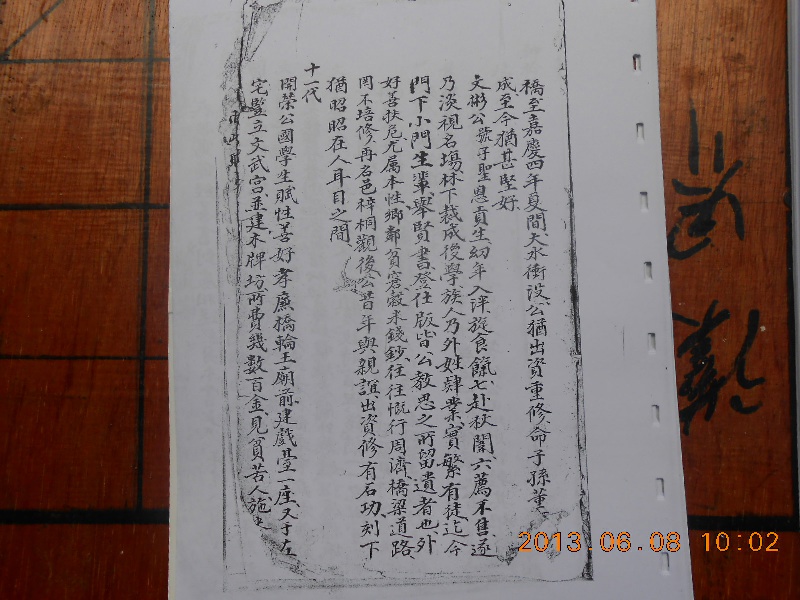 橋至嘉慶四年夏間大水衝没公猶出資重修命子孫董
成至今猶甚堅好
文彬公號子聖恩貢生幼年入泮旋食餼七赴秋闈六薦不售遂
乃淡視名塲林下裁成後學族人乃外姓肄業實繁有徒迄今
門下小門生輩舉賢書登仕版皆公教思之所留遺者也外
好善扶危尤属本性鄉鄰貧窘穀米錢鈔往往慨行周濟橋梁道路
罔不培修再名邑梓桐觀後公昔年與親誼出資修有石功刻下
猶昭昭在人耳目之間
十一代
開榮公國學生賦性善好孝廉橋輪王廟前建戲臺一座又于左
宅豎立文武宫並建木牌坊所費幾數百金見貧苦人施
2013.06.08 10:02